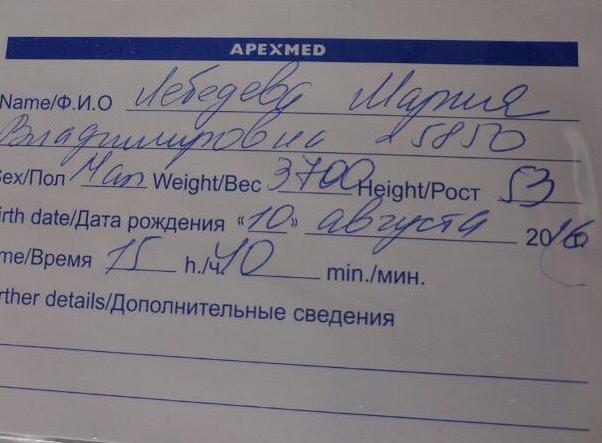 APEXMED
Name/Ф.И.О Лебедева Мария
Владимировна 5850
Sex/Пол Мал Weight/Вес 3700 Height/Рост 53
irth date/Дата рождения «10» августа 2016
me/Время 15 h./ч. 40 min./мин.
rther details/Дополнительные сведения